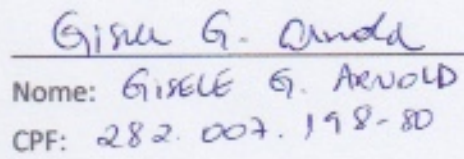 Gisele G. Arnold
Nome: GISELE G. ARNOLD
CPF: 282.007.198-80